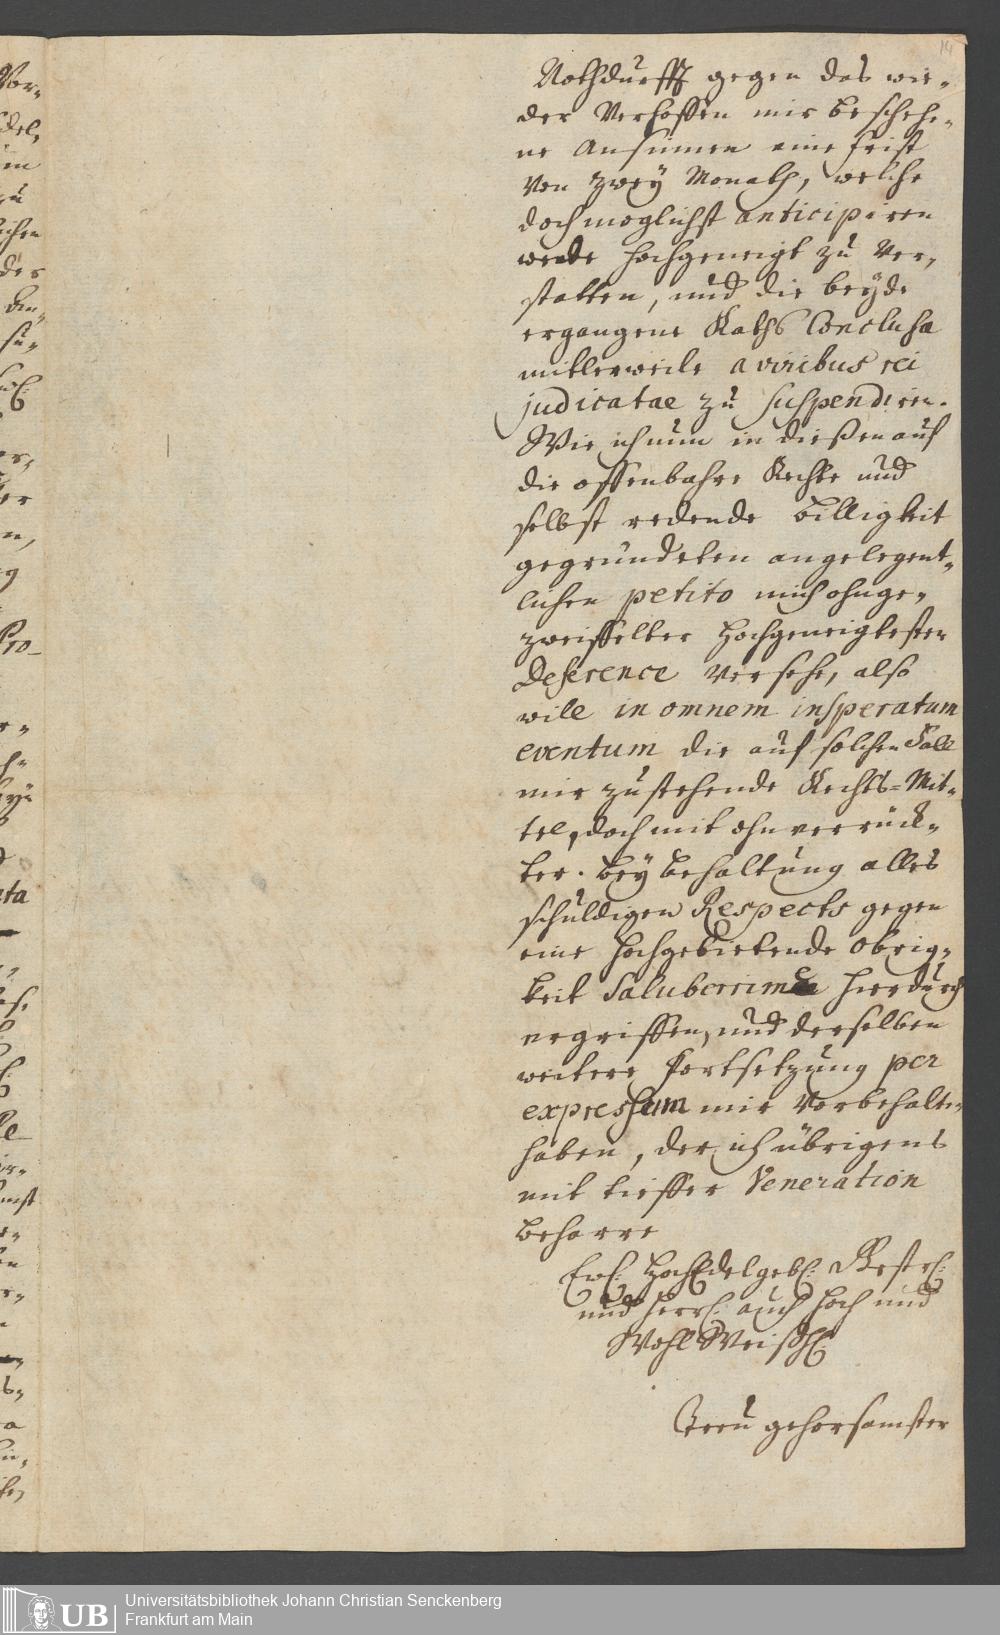 14
Nothdurfft gegen das wie-
der Verhoffen mir beschehe-
ne Ansinnen eine frist
von zwey Monath, welche
doch moglichst anticipiren
werde hochgeneigt zu ver-
statten, und die beyde
ergangene Raths Conclusa
mitlerweile a viribus rei
judicatae zu suspendiren.
Wie ich nun in dießen auf
die offenbahre Rechte und
selbst redende billigkeit
gegründeten angelegent-
lichen petito mich ohnge-
zweiffelter hochgeneigtester
Deference versehe, also
will in omnem insperatum
eventum die auf solchen Fall
mir zustehende Rechts-Mit-
tel, doch mit ohnverrück-
ter beybehaltung alles
schuldigen Respects gegen
eine hochgebietende Obrig-
keit Saluberrime hierdurch
ergriffen, und derselben
weitere fortsetzung per
expressum mir vorbehalten
haben, der ich übrigens
mit tieffer Veneration
beharre
Ew. HochEdelgeb. Gestr.
und Herrl. auch hoch und
Wohl Weish.
Treu gehorsamster
Universitätsbibliothek Johann Christian Senckenberg
Frankfurt am Main
UB